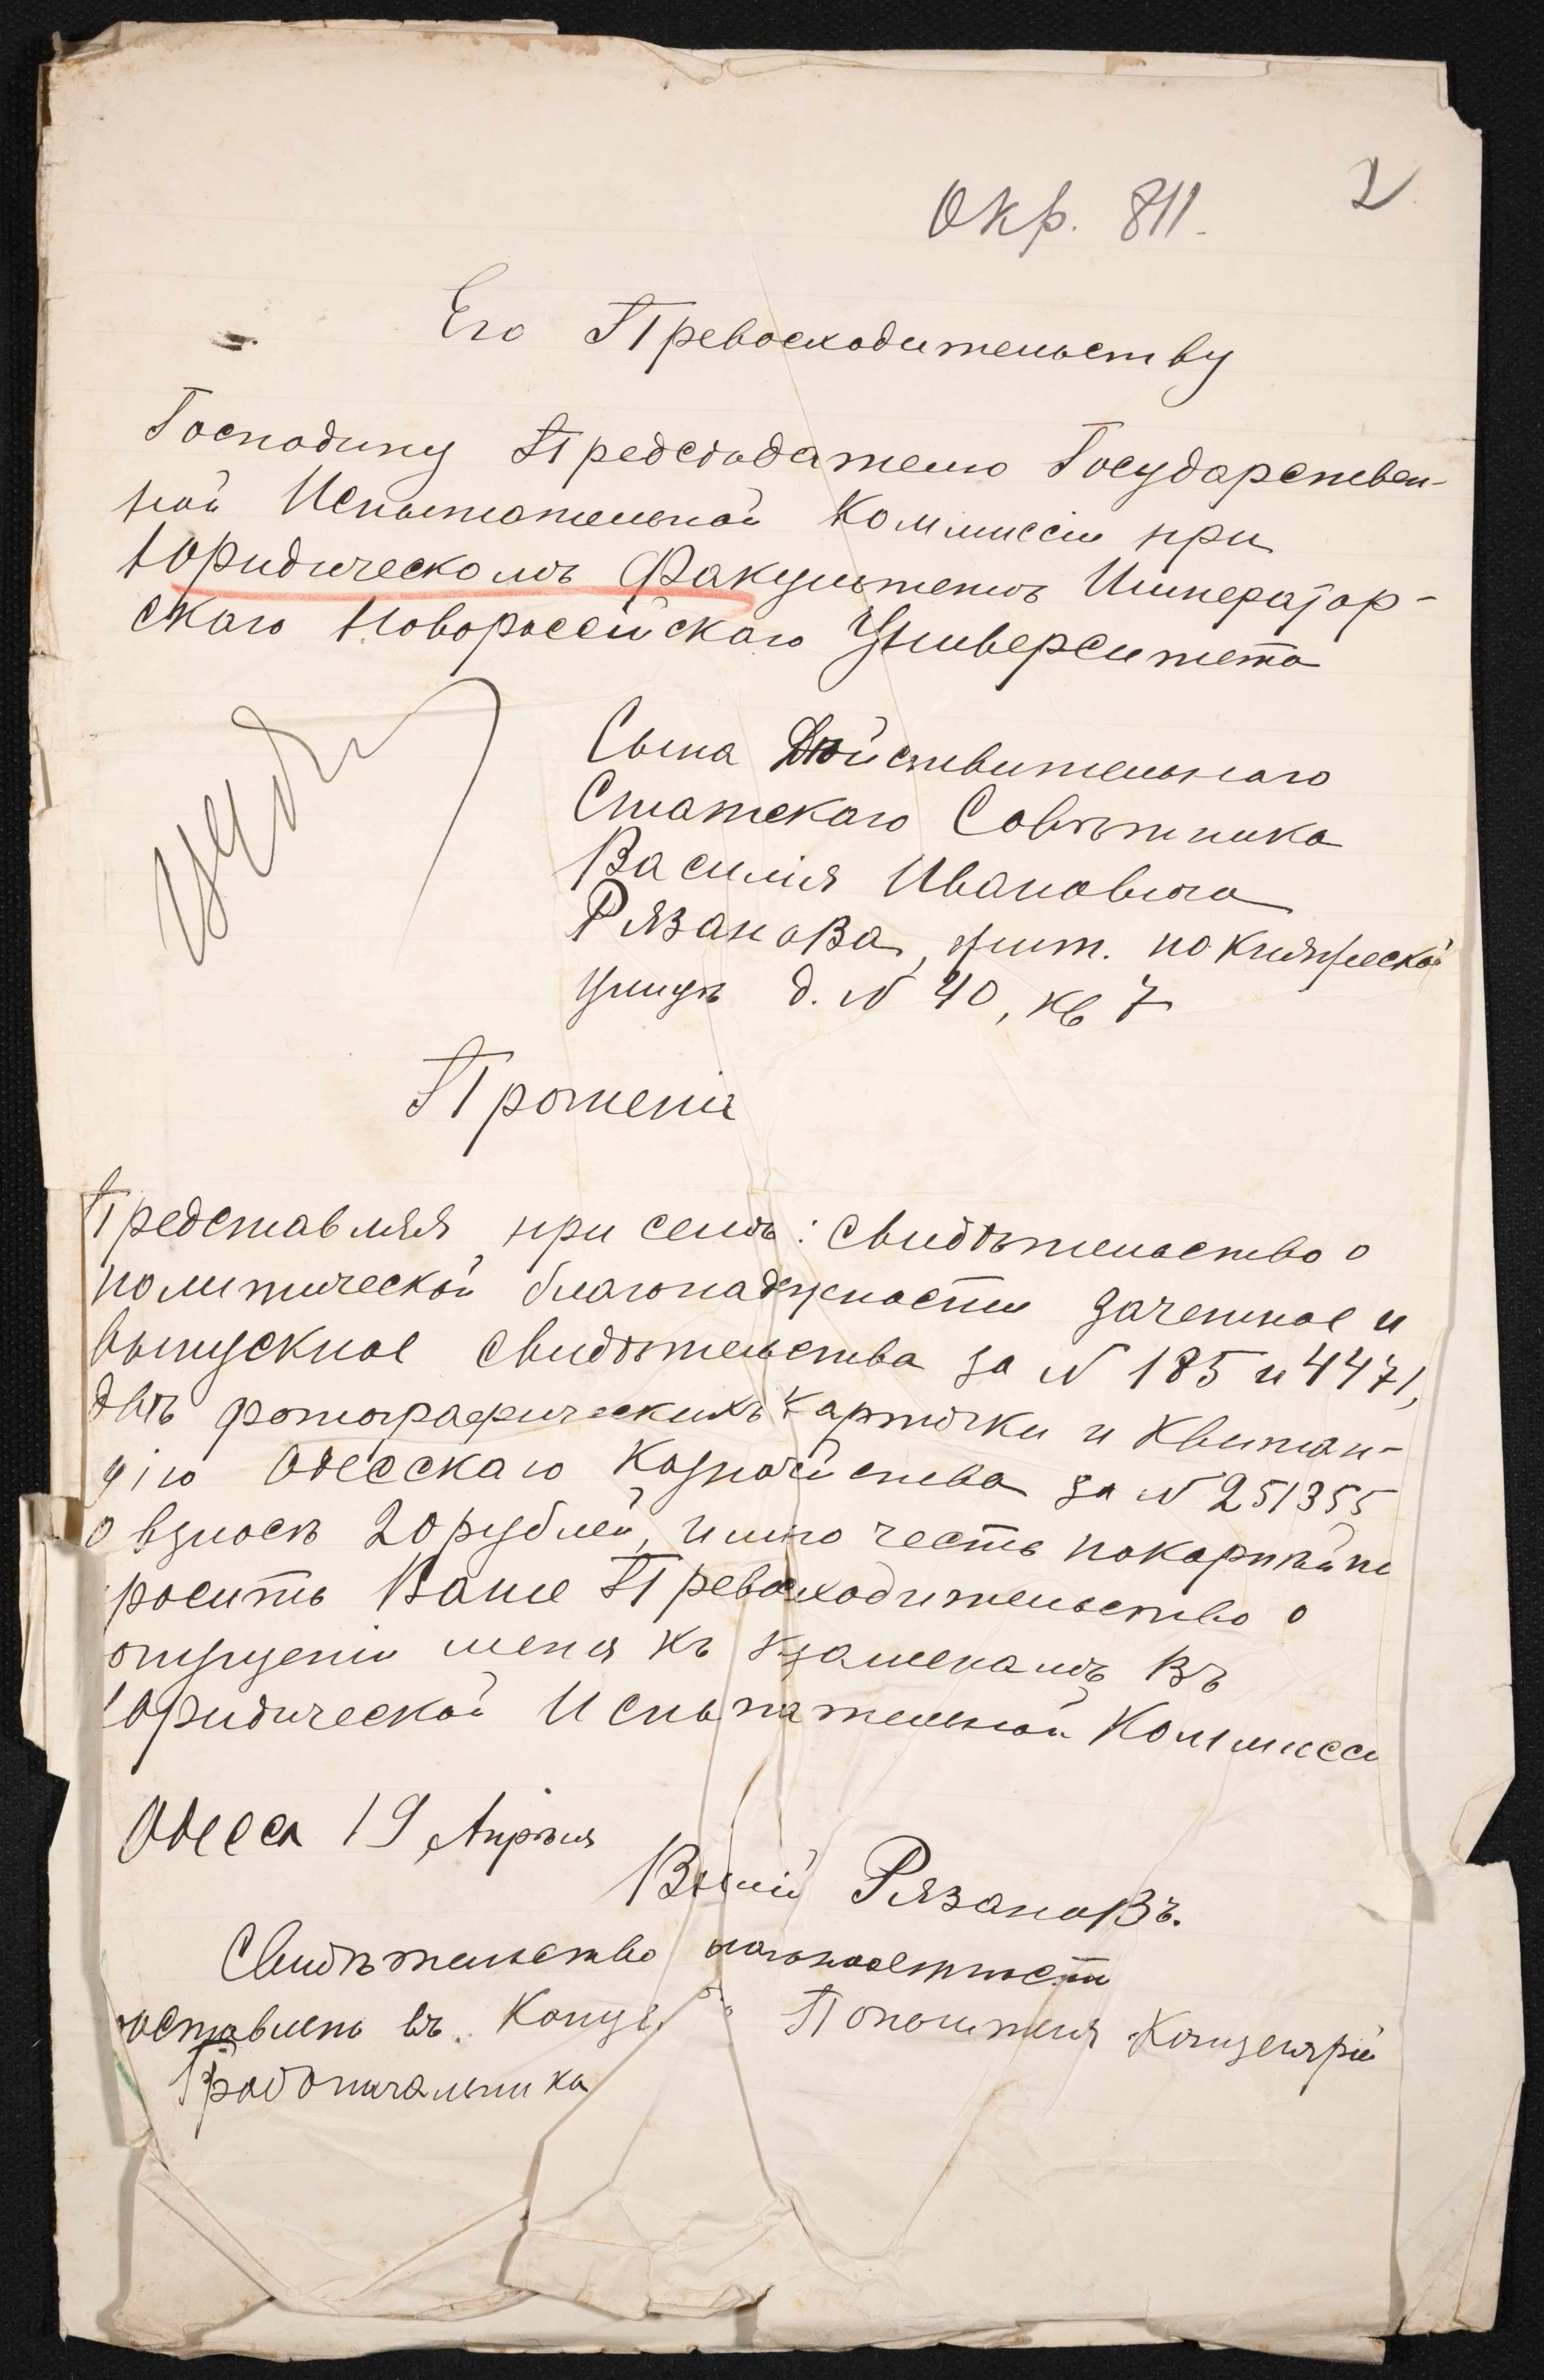 Окр. 811. 2
Его Превосходительству
Господину Предсѣдателю Государствен-
ной Испытательной Коммиссіи при
Юридическомъ Факультетѣ Император-
скаго Новороссійскаго Университета
Сына Дѣйствительнаго
Статскаго Совѣтника
Василія Ивановича
Рязанова, жит. по Княжеской
улицѣ д. № 40, кв 7
Прошеніе
Представляя при семъ: свидѣтельство о
политической благонадежности зачетное и
выпускное свидѣтельства за № 185 и 4471,
двѣ фотографическихъ карточки и квитан-
цію Одесскаго Казначейства за № 251355
о взносѣ 20 рублей, имѣю честь покорнѣйше
росить Ваше Превосходительство о
опущеніи меня къ экзаменамъ въ
Юридической Испытательной Коммисси
Одесса 19 Апрѣля
Василій Рязановъ.
Свидѣтельство
оставлено въ Канце Попечителя Канцелярій
Градоначальника